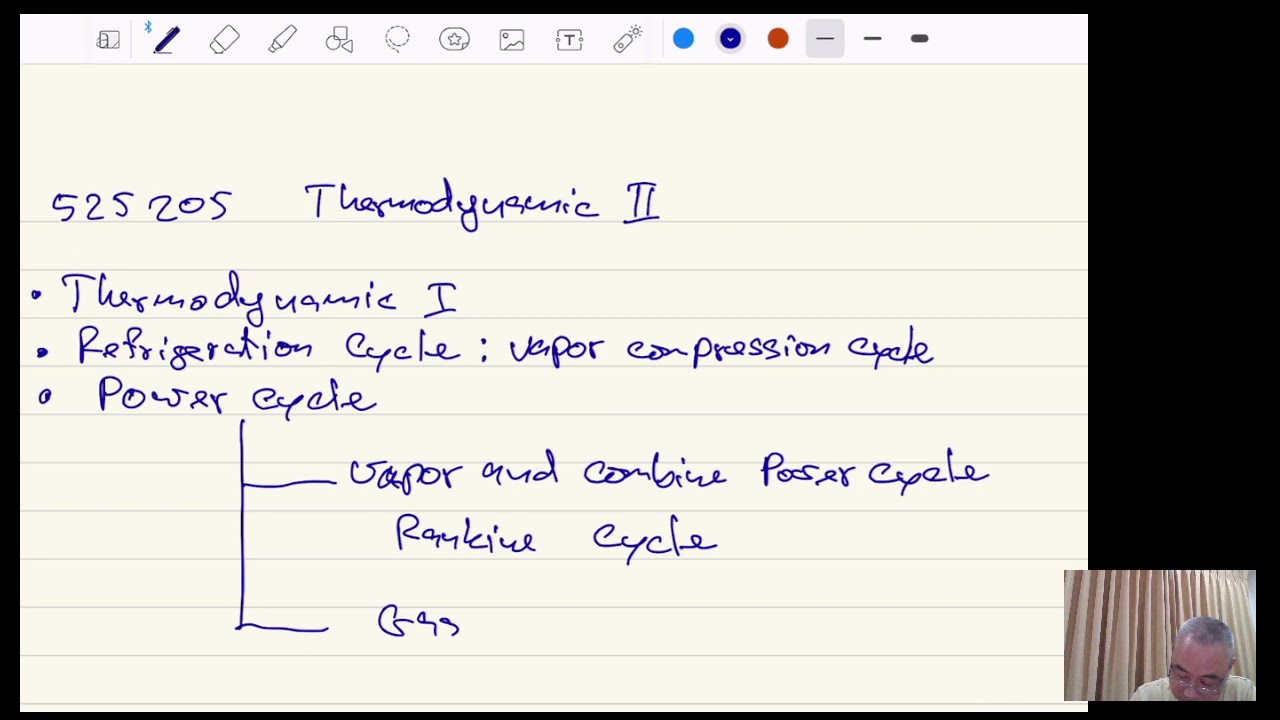 525205 Thermodynamic II
• Thermodynamic I
• Refrigeration Cycle : vapor compression cycle
• Power cycle
vapor and combine Power cycle
Rankine cycle
Gas